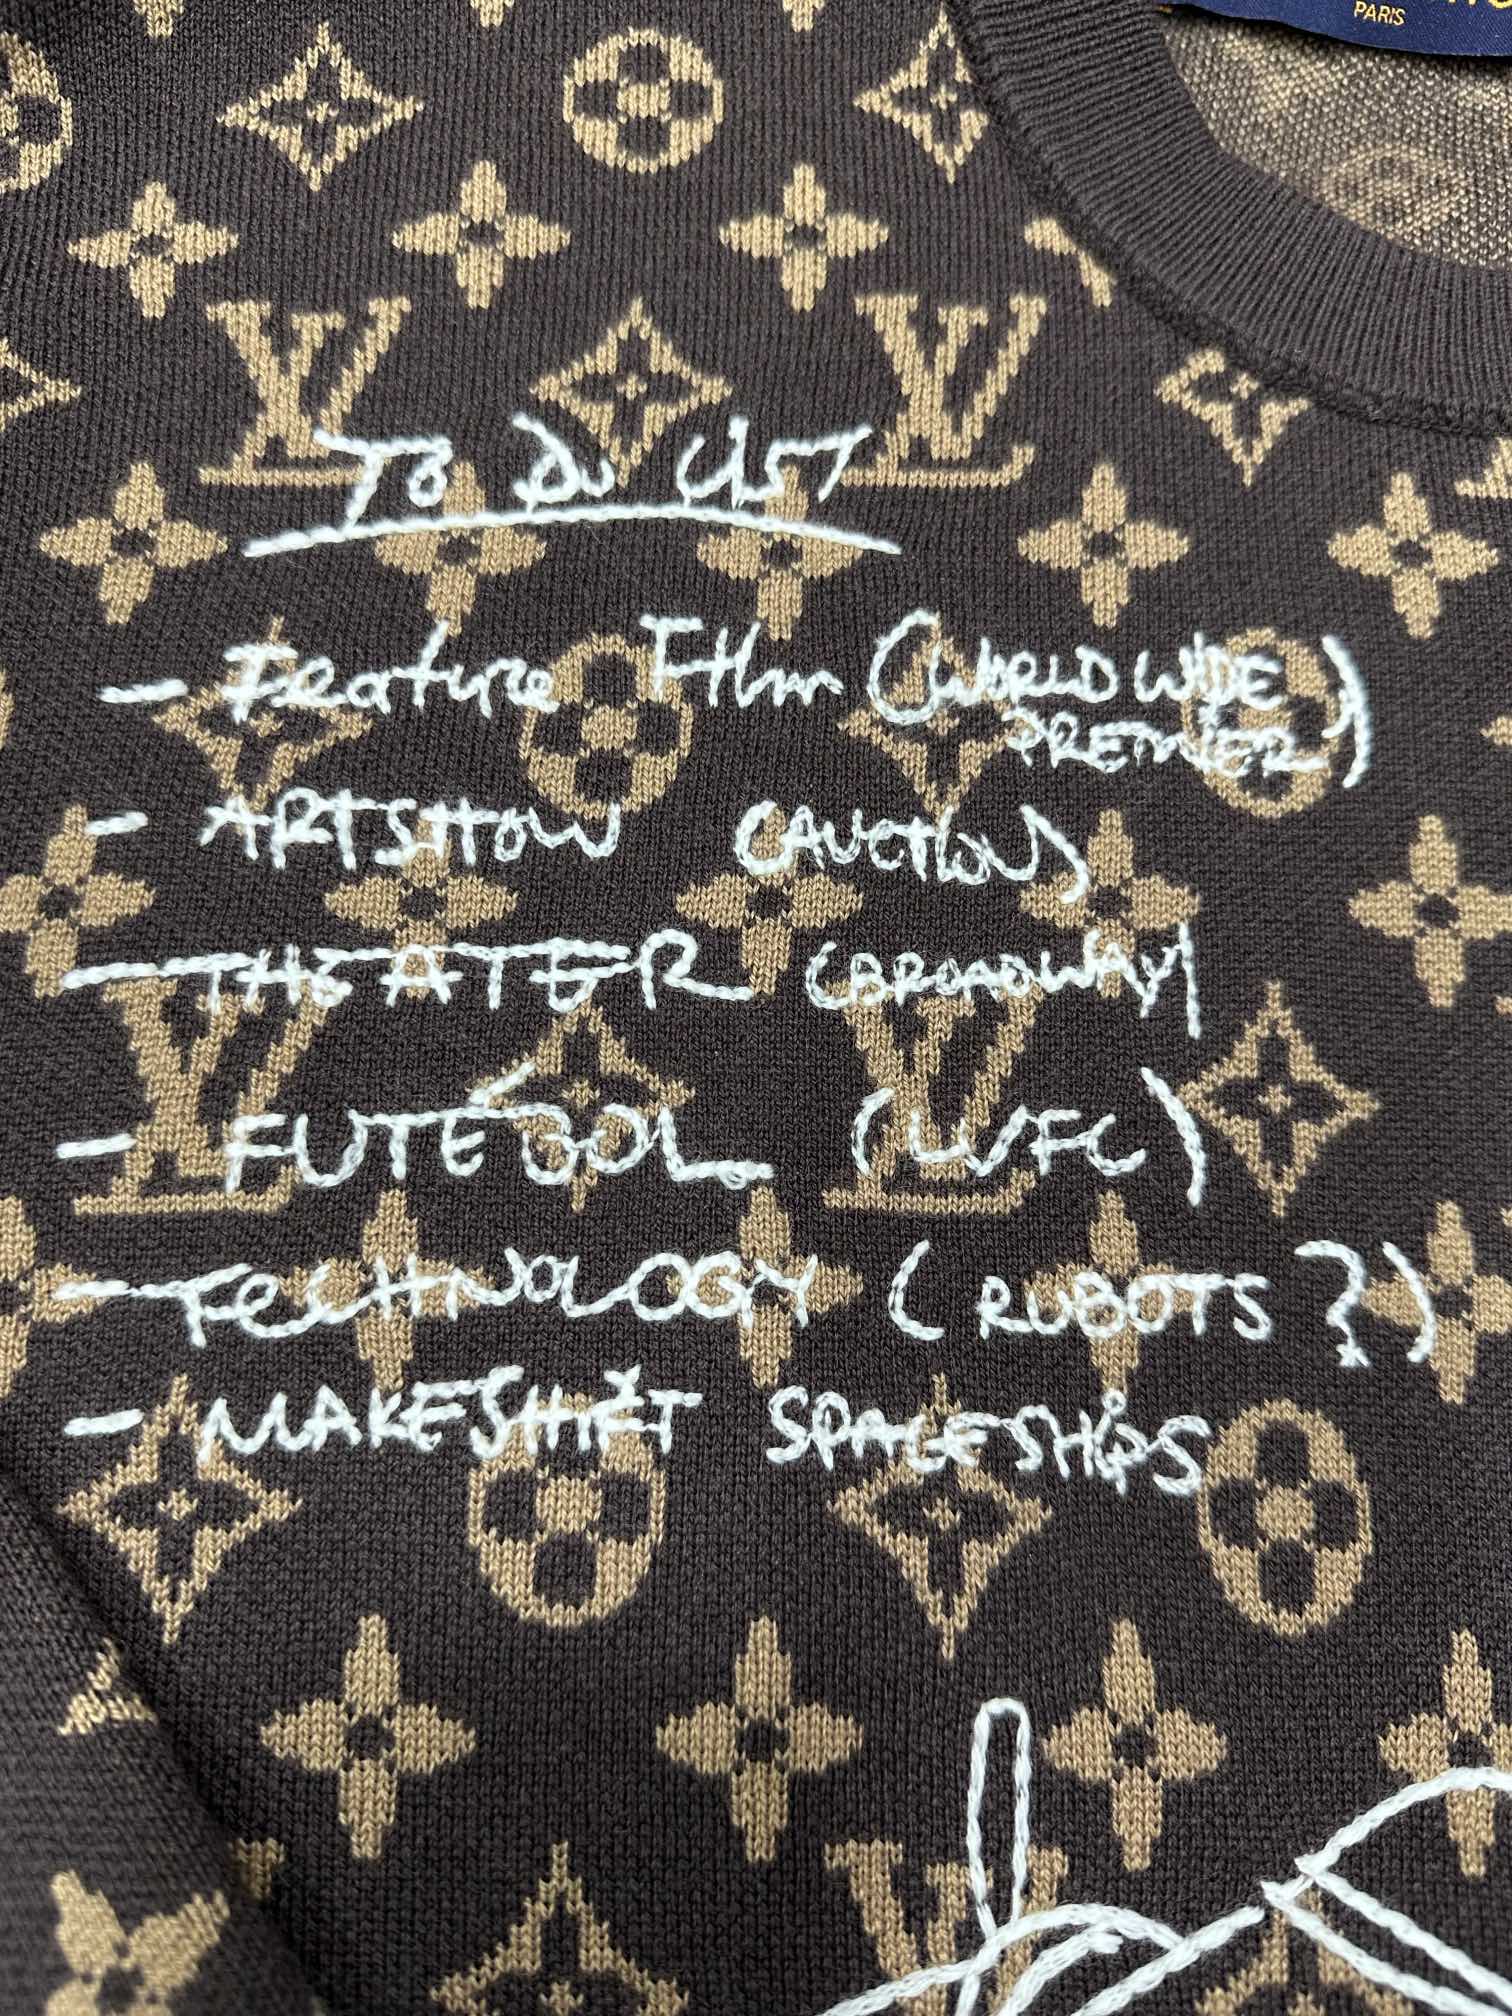 PARIS
TO DO LIST
- Feature Film (WORLDWIDE
PREMIER)
- ARTSHOW (AUCTION)
- THEATER (BROADWAY)
- FUTÉBOL (LVFC)
- TECHNOLOGY (ROBOTS?)
- MAKESHIFT SPACESHIPS